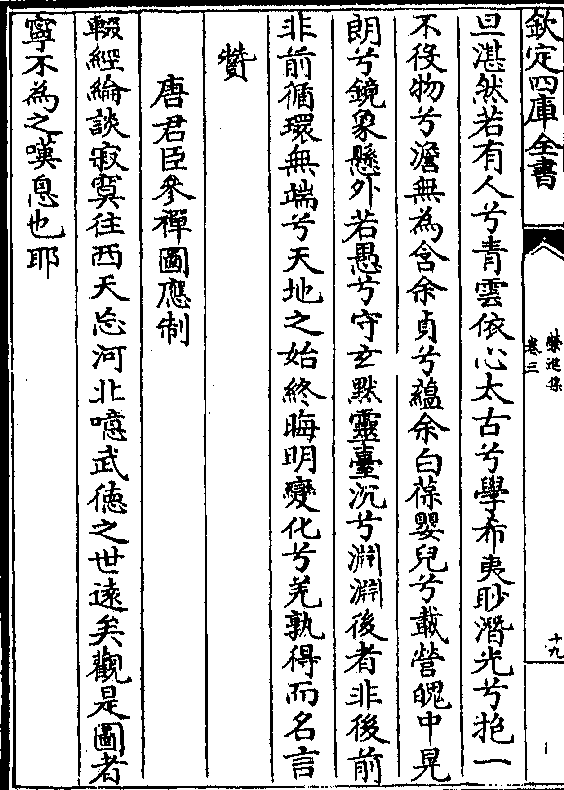 欽定四庫全書
榮進集
卷三
十九
旦湛然若有人兮青雲依心太古兮學希夷眇潛光兮抱一
不役物兮澹無為含余貞兮蘊余白葆嬰兒兮載營魄中晃
朗兮鏡象懸外若愚兮守玄默靈臺沉兮淵淵後者非後前
非前循環無端兮天地之始終晦明變化兮羌孰得而名言
贊
唐君臣參禪圖應制
輟經綸談寂寞往西天忘河北噫武德之世遠矣觀是圖者
寧不為之嘆息也耶